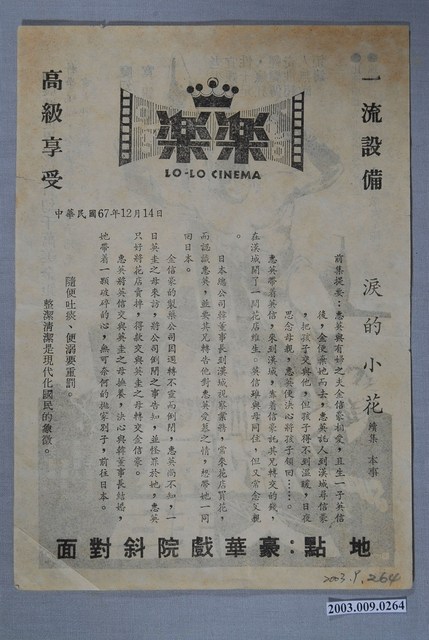 一流設備
高級享受
樂樂
LO-LO CINEMA
中華民國67年12月14日
淚的小花 續集 本事
前集提要:惠英與有婦之夫金信豪相愛,且生一子英信
後,金便棄她而去,惠英託人到漢城尋信豪
,把孩子交與他,但孩子得不到溫暖,日夜
思念母親,惠英使決心將孩子領回……。
惠英帶着英信,來到漢城,靠着信豪託其兄轉交的錢,
在漢城開了一間花店維生。英信雖與母同住,但又常念父親
。
日本總公司韓董事長到漢城視察業務,常來花店買花,
而認識惠英,並要其兄轉告他對惠英愛慕之情,想帶她一同
回日本。
金信豪的製藥公司因週轉不靈而倒閉,惠英尚不知,一
日英圭之母來訪,將公司倒閉之事告知,並怪罪於她,惠英
只好將花店賣掉,得款交與英圭之母轉交金信豪。
惠英將英信交與英圭之母撫養,決心與韓董事長結婚,
她帶着一顆破碎的心,無可奈何的拋家別子,前往日本。
隨便吐痰、便溺要重罰。
整潔清潔是現代化國民的象徵。
地點:豪華戲院斜對面
2003.9.264
2003.009.0264